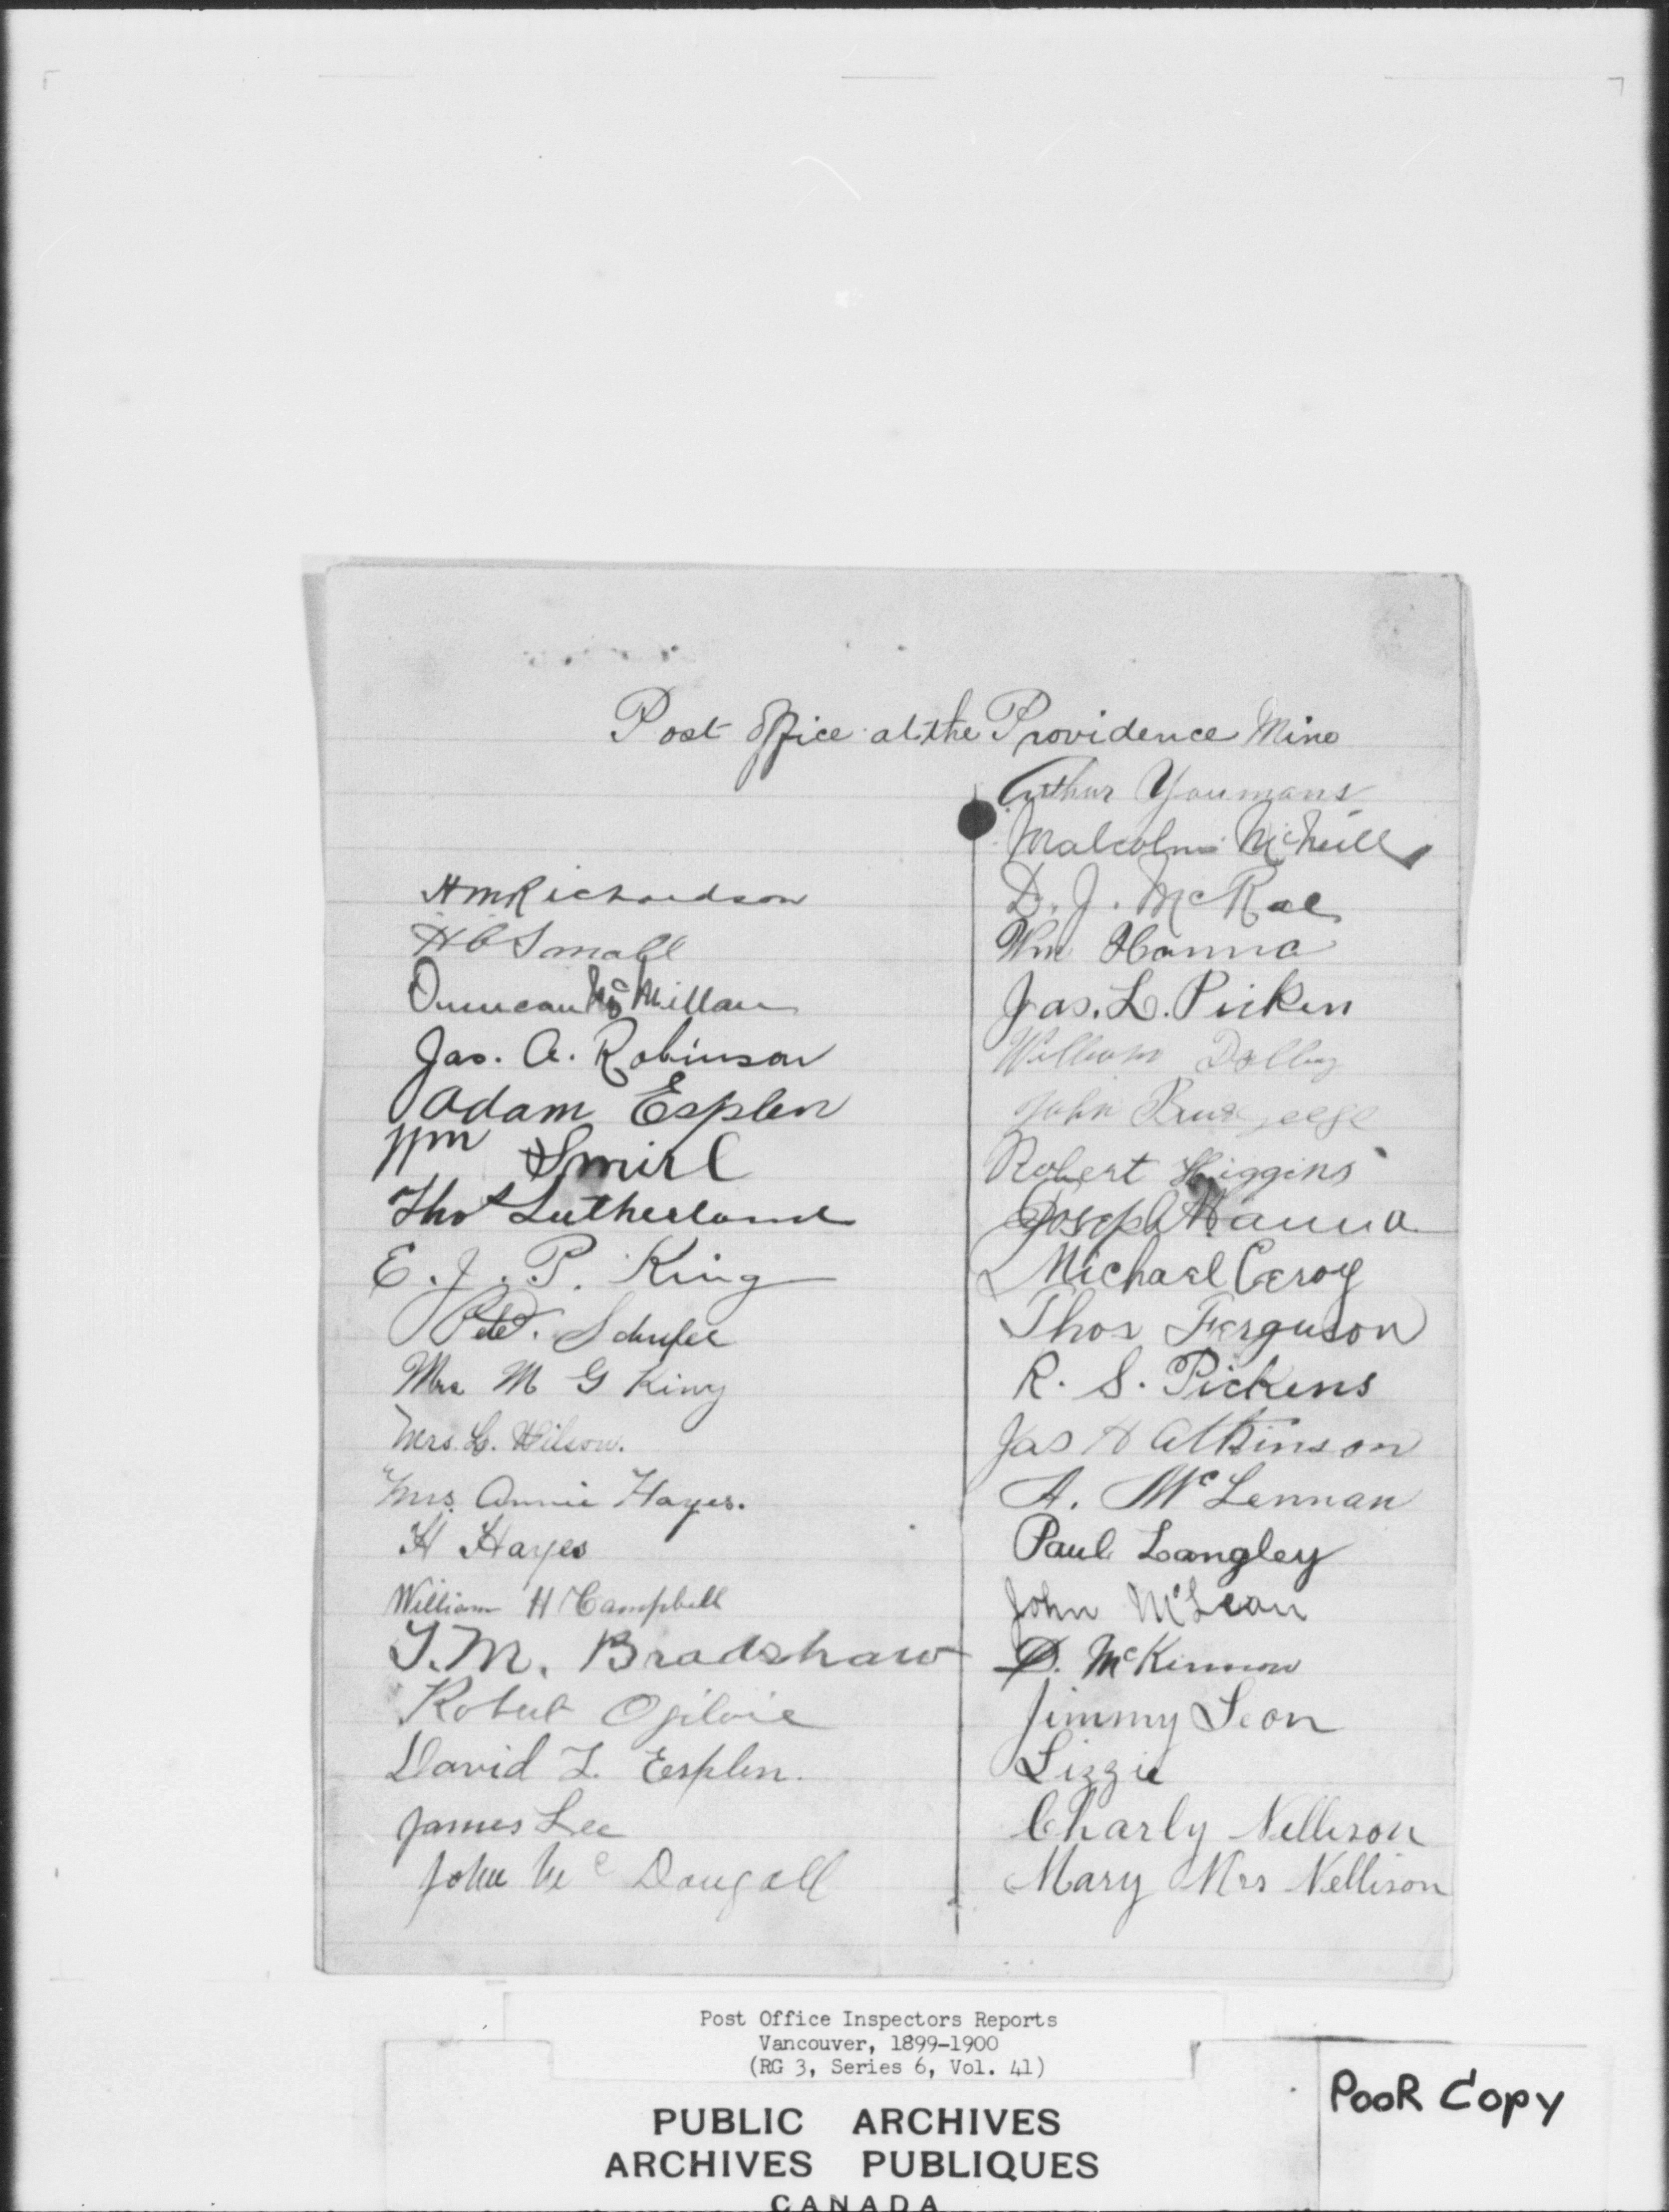 Post office at the Providence Mine
H M Richardson
H C Small
Duncan McMillan
Jas. A. Robinson
Adam Esplen
Wm Smirl
Thos Sutherland
E. J. P. King
Pete. Schufer
Mrs M G King
Mrs. L. Wilson.
Mrs. Annie Hayes.
H Hayes
William H Campbell
T. M. Bradshaw
Robert Ogilvie
David L. Esplen.
James Lee
John McDougall
Arthur Youmans
Malcolm McNeill
D. J. McRae
Wm Hanna
Jas. L. Picken
William Dolby
John
Robert Higgins
Joseph Hanna
Michael Ceroy
Thos Ferguson
R. S. Pickens
Jas H Atkinson
A. McLennan
Paul Langley
John McLean
D. McKinnon
Jimmy Leon
Lizzie
Charly Nellison
Mary Mrs Nellison
Post Office Inspectors Reports
Vancouver, 1899-1900
(RG 3, Series 6, Vol. 41)
PUBLIC ARCHIVES
ARCHIVES PUBLIQUES
CANADA
POOR COPY